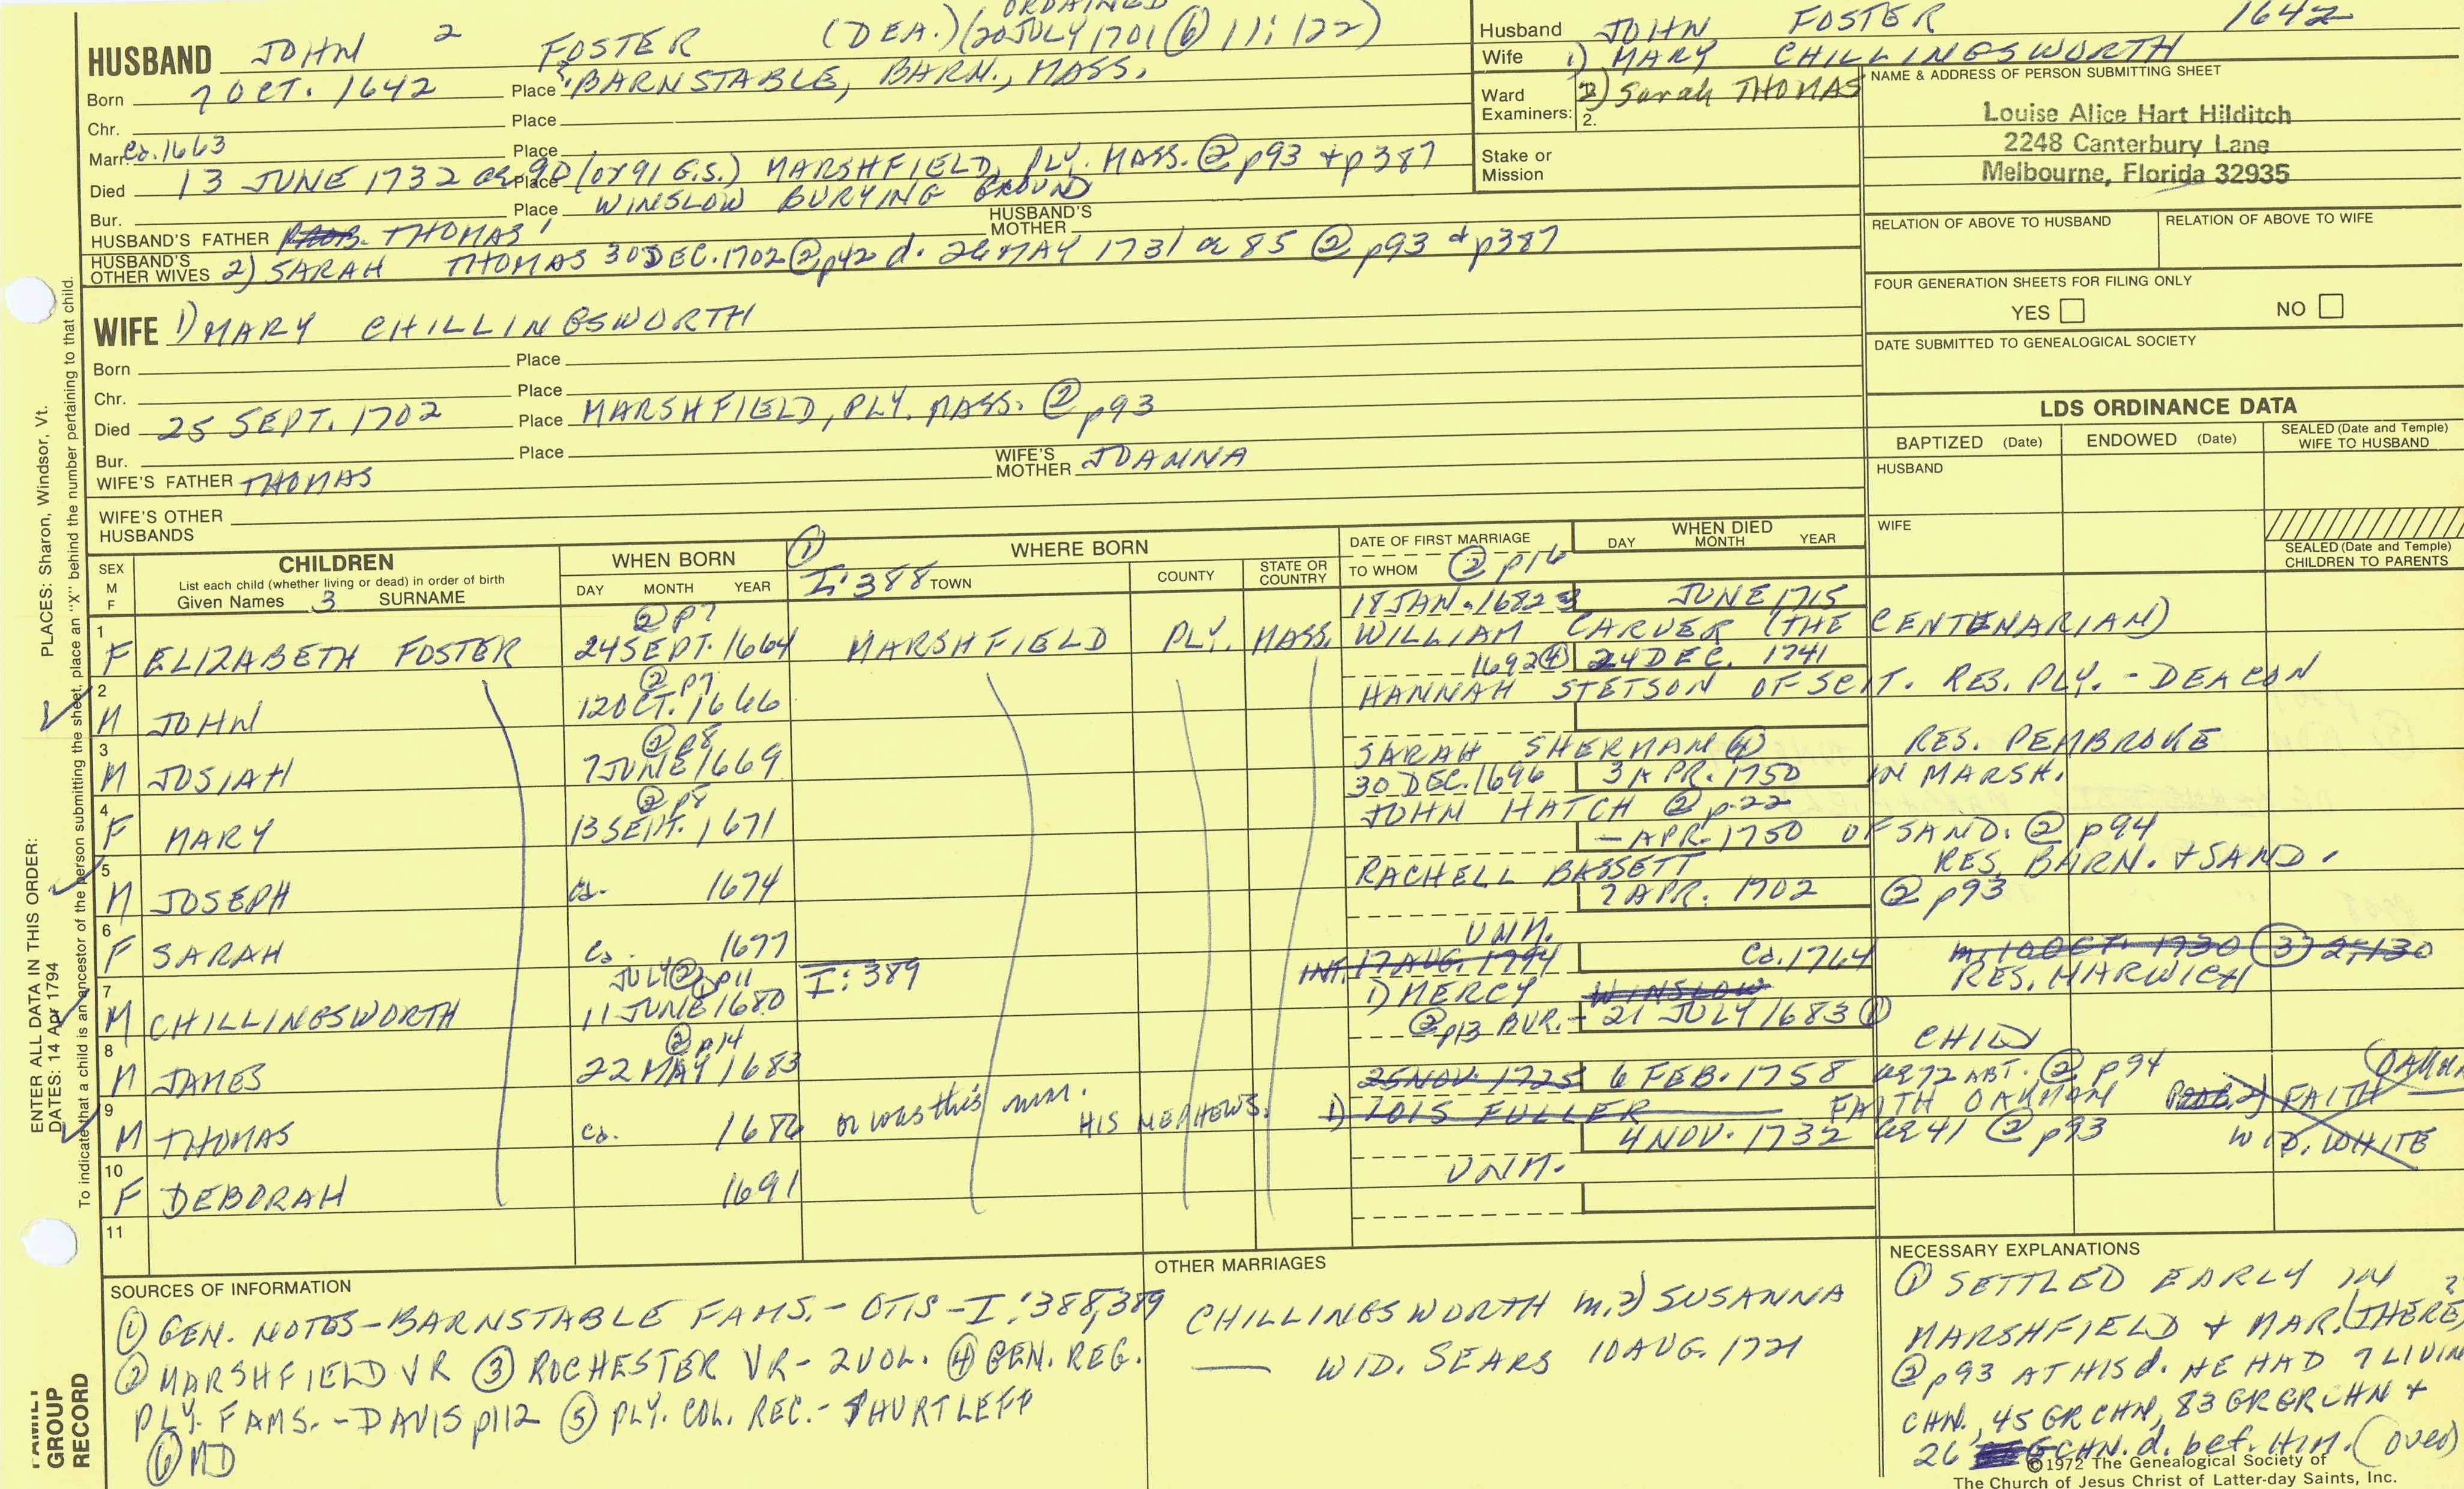 ORDAINED
HUSBAND JOHN 2 FOSTER (DEA.) (20 JULY 1701 (6) 11:122)
Born 7 OCT. 1642 Place BARNSTABLE, BARN., MASS.
Chr. Place
Marr. ca. 1663 Place
Died 13 JUNE 1732 ae 90 (or 91 G.S.) Place MARSHFIELD, PLY. MASS. ② p93 + p387
Bur. Place WINSLOW BURYING GROUND
HUSBAND'S FATHER PROB. THOMAS 1 HUSBAND'S MOTHER
HUSBAND'S OTHER WIVES 2) SARAH THOMAS 30 DEC. 1702 ② p42 d. 26 MAY 1731 ae 85 ② p93 + p387
WIFE 1) MARY CHILLINGSWORTH
Born Place
Chr. Place
Died 25 SEPT. 1702 Place MARSHFIELD, PLY. MASS. ② p93
Bur. Place
WIFE'S FATHER THOMAS WIFE'S MOTHER JOANNA
WIFE'S OTHER HUSBANDS
Husband JOHN FOSTER 1642
Wife 1) MARY CHILLINGSWORTH
Ward Examiners: 2) Sarah THOMAS
2.
Stake or Mission
NAME & ADDRESS OF PERSON SUBMITTING SHEET
Louise Alice Hart Hilditch
2248 Canterbury Lane
Melbourne, Florida 32935
RELATION OF ABOVE TO HUSBAND RELATION OF ABOVE TO WIFE
FOUR GENERATION SHEETS FOR FILING ONLY
YES NO
DATE SUBMITTED TO GENEALOGICAL SOCIETY
LDS ORDINANCE DATA
BAPTIZED (Date) ENDOWED (Date) SEALED (Date and Temple) WIFE TO HUSBAND
HUSBAND
WIFE
SEALED (Date and Temple) CHILDREN TO PARENTS
SEX M F
CHILDREN
List each child (whether living or dead) in order of birth
Given Names 3 SURNAME
WHEN BORN
DAY MONTH YEAR
① I:388
WHERE BORN
TOWN COUNTY STATE OR COUNTRY
DATE OF FIRST MARRIAGE
TO WHOM ② p16
WHEN DIED
DAY MONTH YEAR
② p7 18 JAN. 1682 3 JUNE 1715
1 F ELIZABETH FOSTER 24 SEPT. 1664 MARSHFIELD PLY. MASS. WILLIAM CARVER (THE CENTENARIAN)
② p7 1692 ④ 24 DEC. 1741
2 M JOHN 12 OCT. 1666 HANNAH STETSON OF SCIT. RES. PLY. - DEACON
② p8
3 M JOSIAH 7 JUNE 1669 SARAH SHERMAN ④ RES. PEMBROKE
② p8 30 DEC. 1696 3 APR. 1750 IN MARSH.
4 F MARY 13 SEPT. 1671 JOHN HATCH ② p.22
- APR. 1750 OF SAND. ② p94
5 M JOSEPH ca. 1674 RACHELL BASSETT RES. BARN. + SAND.
7 APR. 1702 ② p93
6 F SARAH ca. 1677 UNM.
JULY ② p11 I:389 INT. 17 AUG. 1794 Ca. 1764 m. 10 OCT. 1730 ③ 2;130
7 M CHILLINGSWORTH 11 JUNE ① 1680 1) MERCY WINSLOW RES. HARWICH
② p14 ② p13 BUR. - 21 JULY 1683 ①
8 M JAMES 22 MAY 1683 CHILD
25 NOV. 1725 6 FEB. 1758 ae 72 ABT. ② p94
9 M THOMAS ca. 1686 or was this mar. HIS NEPHEWS. 1) LOIS FULLER FAITH OAKMAN PROB. 2) FAITH (OAKMAN
4 NOV. 1732 ae 41 ② p93 WID. WHITE
10 F DEBORAH 1691 UNM.
11
SOURCES OF INFORMATION
① GEN. NOTES - BARNSTABLE FAMS. - OTIS - I:388,389
② MARSHFIELD VR ③ ROCHESTER VR - 2 VOL. ④ GEN. REG.
PLY. FAMS. - DAVIS p112 ⑤ PLY. COL. REC. - SHURTLEFF
⑥ MD
OTHER MARRIAGES
CHILLINGSWORTH m. 2) SUSANNA
— WID. SEARS 10 AUG. 1721
NECESSARY EXPLANATIONS
① SETTLED EARLY IN
MARSHFIELD + MAR. (THERE?)
② p93 AT HIS d. HE HAD 7 LIVIN
CHN., 45 GR CHN, 83 GR GR CHN +
26 CHN. d. bef. HIM. (over)
©1972 The Genealogical Society of
The Church of Jesus Christ of Latter-day Saints, Inc.
ENTER ALL DATA IN THIS ORDER:
PLACES: Sharon, Windsor, Vt.
DATES: 14 Apr 1794
To indicate that a child is an ancestor of the person submitting the sheet, place an "X" behind the number pertaining to that child.
FAMILY GROUP RECORD